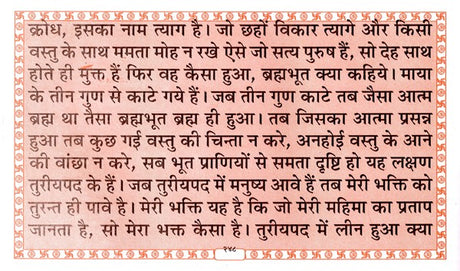 क्रोध, इसका नाम त्याग है। जो छहों विकार त्यागे और किसी
वस्तु के साथ ममता मोह न रखे ऐसे जो सत्य पुरुष हैं, सो देह साथ
होते ही मुक्त हैं फिर वह कैसा हुआ, ब्रह्मभूत क्या कहिये। माया
के तीन गुण से काटे गये हैं। जब तीन गुण काटे तब जैसा आत्म
ब्रह्म था तैसा ब्रह्मभूत ब्रह्म ही हुआ। तब जिसका आत्मा प्रसन्न
हुआ तब कुछ गई वस्तु की चिन्ता न करे, अनहोई वस्तु के आने
की वांछा न करे, सब भूत प्राणियों से समता दृष्टि हो यह लक्षण
तुरीयपद के हैं। जब तुरीयपद में मनुष्य आवे हैं तब मेरी भक्ति को
तुरन्त ही पावे है। मेरी भक्ति यह है कि जो मेरी महिमा का प्रताप
जानता है, सो मेरा भक्त कैसा है। तुरीयपद में लीन हुआ क्या
२४८